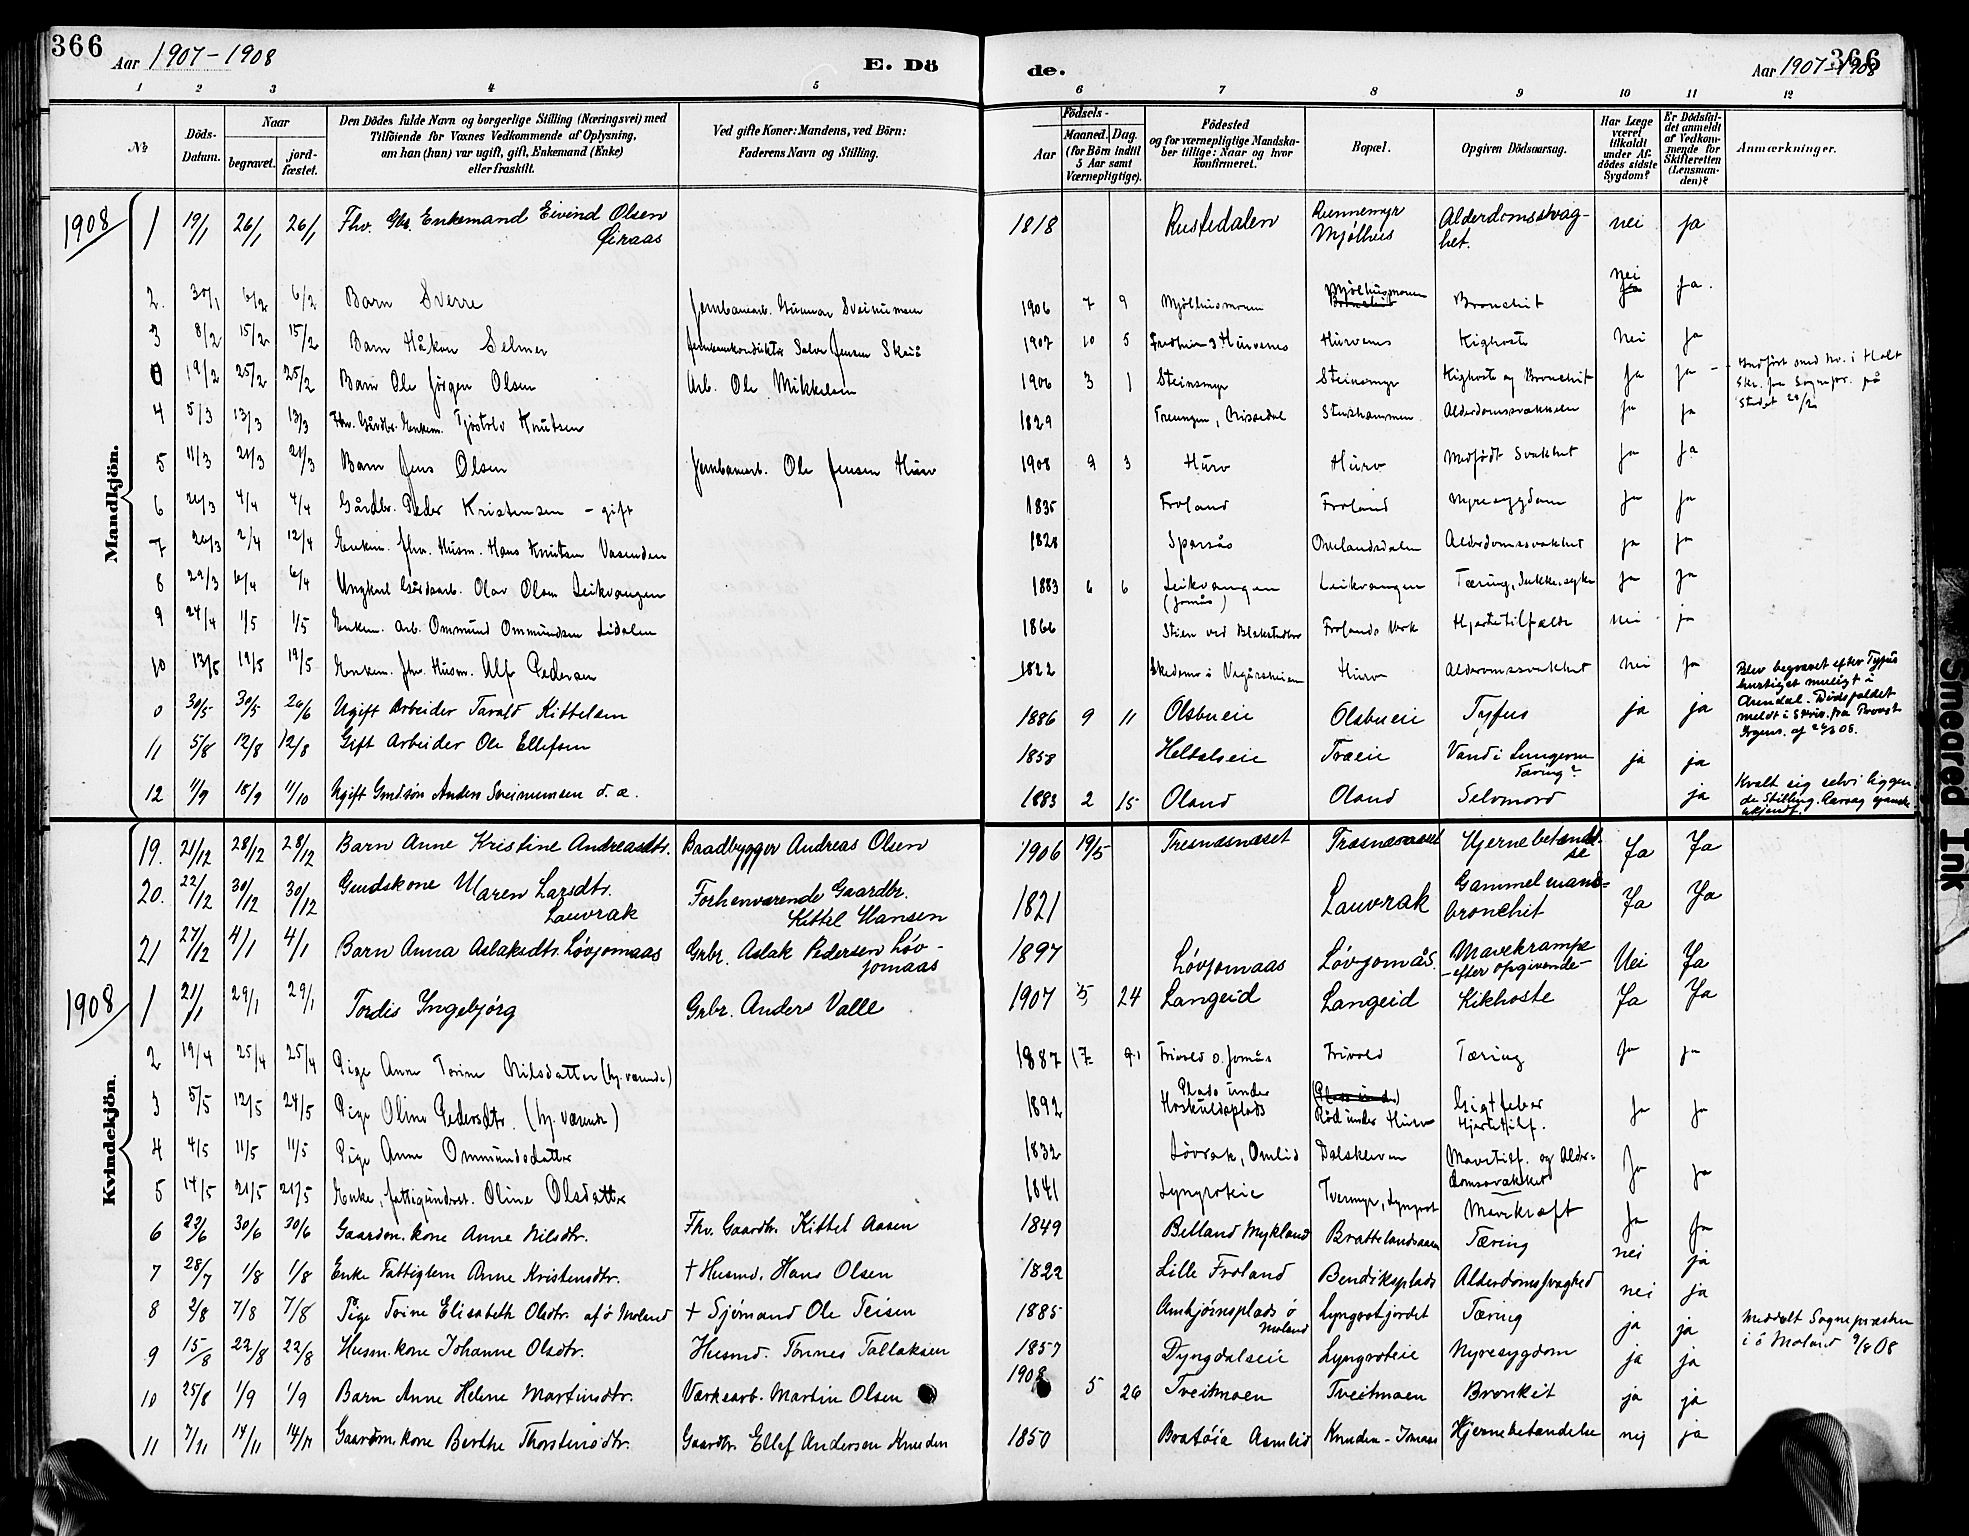 366
Aar 1907-1908
E. Dö
de.
Aar 1907-1908
366
1 2 3 4 5 6 7 8 9 10 11 12
№
Döds-Datum.
Naar
begravet.
jord-fæstet.
Den Dödes fulde Navn og borgerlige Stilling (Næringsvei) med
Tilföiende for Voxnes Vedkommende af Oplysning,
om han (hun) var ugift, gift, Enkemand (Enke)
eller fraskilt.
Ved gifte Koner: Mandens, ved Börn:
Faderens Navn og Stilling.
Födsels-
Aar
Maaned. Dag.
(for Börn indtil
5 Aar samt
Værnepligtige).
Födested
og for værnepligtige Mandska-
ber tillige: Naar og hvor
konfirmeret.
Bopæl.
Opgiven Dödsaarsag.
Har Læge
været
tilkaldt
under Af-
dödes sidste
Sygdom?
Er Dödsfal-
det anmeldt
af Vedkom-
mende for
Skifteretten
(Lensman-
den)?
Anmærkninger.
Mandkjön.
1908
1 19/1 26/1 26/1 Fhv. Gbr. Enkemand Eivind Olsen 1818 Rustedalen Rennemyr Alderdomssvag- nei ja
Øiraas Mjølhus het.
2. 30/1 6/2 6/2 Barn Sverre Jernbanearb. Gunnar Sveinumsen 1906 7 9 Mjølhusmoen Mjølhusmoen Bronchit Nei ja.
3 8/2 15/2 15/2 Barn Håkon Selmer Jensen 1907 10 5 Hurvenes Kighoste Nei Ja
0 19/2 25/2 25/2 Barn Ole Jörgen Olsen Arb. Ole Mikkelsen 1906 3 1 Steinsmyr Steinsmyr Kighoste og Bronchit Ja ja - Indfört med Nr. i Holt
Skr. fra Sognepr. på
Stedet
4 5/3 13/3 13/3 Fhv. Gårdbr. Enkem. Tjöstolv Knutsen 1829 Treungen, Nissedal Alderdomssvakhet ja ja
5 11/3 21/3 21/3 Barn Jens Olsen Jernbanearb. Ole Jensen Hurv 1908 9 3 Hurv Hurv Medfödt Svakhet ja ja
6 26/3 4/4 4/4 Gårdbr. Peder Kristensen - gift 1835 Froland Froland Nyresygdom ja ja
7 26/3 2/4 12/4 Enkem. fhv. Husm. Hans Knutsen Vasenden 1828 Sparsås Ovelandsdalen Alderdomssvakhet ja ja
8 29/3 6/4 6/4 Ungkarl Gårdsarb. Olav Olsen Leikvangen 1883 6 6 Leikvangen Leikvangen Tæring, Sukkersyke ja ja
(Jomås)
9 24/4 1/5 1/5 Enkem. arb. Ommund Ommundsen Lidalen 1866 Stien ved Blakstadbro Frolands Verk Hjertetilfælde nei ja
10 13/5 19/5 19/5 Enkem. fhv. Husm. Alf Pedersen 1822 Vegårsheien Hurv Alderdomssvakhet Nei Ja
0 30/5 30/5 26/6 Ugift Arbeider Tarald Kittelsen 1886 9 11 Olsbueie Olsbueie Tyfus ja ja Blev begravet efter Tyfus
hurtigst muligt i
Arendal. Dödsfaldet
meldt i Skriv. fra Provst
af 08.
11 5/8 12/8 12/8 Gift Arbeider Ole Ellefsen 1858 Heltalseie Træeie Vand i Lungerne ja ja
Tæring?
12 11/9 18/9 11/10 Ugift Grndsön Anders Sveinumsen d. æ. 1883 2 15 Oland Oland Selvmord ja Kvalt sig selv i liggen
de Stilling. Aarsag
ukjendt.
Kvindekjön.
19. 21/12 28/12 28/12 Barn Anne Kristine Andreasdtr. Baadbygger Andreas Olsen 1906 19/5 Tresnæsnæset Træsnæsnæset Hjernebetændel- Ja Ja
se
20. 22/12 30/12 30/12 Grndskone Maren Larsdtr. Forhenværende Gaardbr. 1821 Lauvrak Gammelmands- Ja Ja
Lauvrak Kittel Hansen bronchit
21 27/12 4/1 4/1 Barn Anna Aslaksdtr. Løvjomaas Grbr. Aslak Pedersen Løv- 1897 Løvjomaas Løvjomås. Mavekrampe Nei Ja
jomaas -efter opgivende-
1908
1 21/1 29/1 29/1 Tordis Ingebjørg Grbr. Anders Valle 1907 5 24 Langeid Langeid Kikhoste Ja Ja
2 19/4 25/4 25/4 Pige Anne Torine Nilsdatter (hj. værende) 1887 Frivold o. Jomås Frivold Tæring Ja ja
3 5/5 12/5 24/5 Pige Oline Pedersdtr. (hj. værende) 1892 Plads under Gigtfeber ja ja
Hoskuldsplads Röd under Hurv Hjertetilf.
4 4/5 11/5 11/5 Pige Anne Ommundsdatter 1832 Lövrak, Omlid Dalskleven Mavetilf. og Alder- Ja ja
domssvakhet
5 14/5 21/5 21/5 Enke, fattigunderst. Oline Olsdatter 1841 Lyngroteie Tvermyr, Lyngrot Mavekræft Ja Ja
6 23/6 30/6 30/6 Gaardm. kone Anne Nilsdtr. Fhv. Gaardbr. Kittel Aasen 1849 Belland Mykland Brattelandsaasen Tæring nei ja
7 28/7 1/8 1/8 Enke Fattiglem Anne Kristensdtr. † Husmd. Hans Olsen 1822 Lille Froland Bendiksplads Alderdomssvaghed nei ja
8 2/8 7/8 7/8 Pige Torine Elisabeth Olsdtr. af ö Moland † Sjömand Ole Teisen 1885 ö Lyngrotfjordet Tæring ja ja Meddelt Sognepræsten
Moland i ö Moland 9/8 08
9 15/8 22/8 22/8 Husm. kone Johanne Olsdtr. Husmd. Tönnes Tallaksen 1857 Dyngdalseie Lyngroteie Nyresygdom ja ja
10 25/8 1/9 1/9 Barn Anne Helene Martinsdtr. Værksarb. Martin Olsen 1908 5 26 Tveitmoen Tveitmoen Bronkit ja ja
11 7/11 14/11 14/11 Gaardm. kone Berthe Thorstensdtr. Gaardbr. Ellef Andersen Knuden 1850 Aamlid Knuden-Jomaas Hjernebetændelse nej ja
Smeared Ink